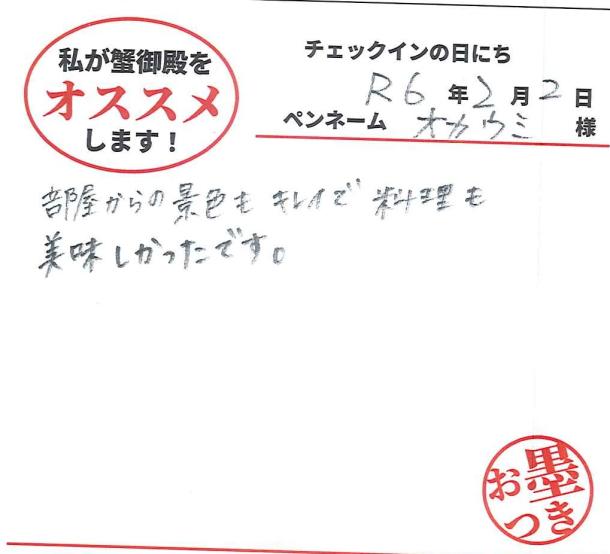 私が蟹御殿を
オススメ
します！
チェックインの日にち
R6年2月2日
ペンネーム オカウミ 様
部屋からの景色もキレイで料理も
美味しかったです。
お墨
つき